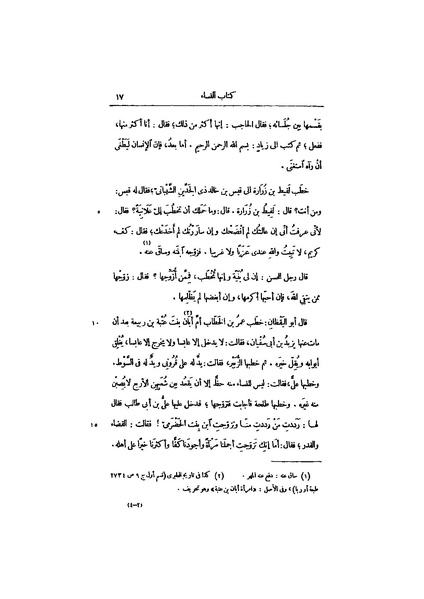 كتاب النساء ١٧
يقسمها بين جلسائه؛ فقال الحاجب : إنها أكثر من ذلك؛ فقال : أنا أكثر منها،
ففعل؛ ثم كتب الى زياد: بسم الله الرحمن الرحيم . أما بعد، فإن الإنسان ليطغى
أن رآه استغنى.
خطب لقيط بن زرارة الى قيس بن خالد ذى الجدّين الشيبانىّ؛ فقال له قيس:
ومن أنت؟ قال : لقيط بن زرارة . قال: وما حملك أن تخطب إلىّ علانية؟ فقال: ٥
لأنى عرفت أنى إن عالنتك لم أفضحك وإن ساررتك لم أخدعك؛ فقال : كفء
كريم، لا تبيت والله عندى عزبا ولا غريبا . فزوّجه ابنته وساق عنه (١) .
قال رجل للحسن : إن لى بُنيّة وإنها تُخطب، فممّن أزوّجها ؟ فقال : زوّجها
ممن يتقى الله، فإن أحبها أكرمها، وإن أبغضها لم يظلمها .
قال أبو اليقظان: خطب عمر بن الخطاب أمّ أبان (٢) بنت عتبة بن ربيعة بعد أن ١٠
مات عنها يزيد بن أبى سفيان، فقالت: لا يدخل إلا عابسا ولا يخرج إلا عابسا، يُغلق
أبوابه ويُقلّ خيره . ثم خطبها الزبير، فقالت: يدٌ له على قرونى ويدٌ له فى السوط.
وخطبها علىّ، فقالت: ليس للنساء منه حظّ إلا أن يقعد بين شعبهن الأربع لا يُصبن
منه غيره . وخطبها طلحة فأجابت فتزوّجها ؛ فدخل عليها علىّ بن أبى طالب فقال
لها : رددتِ من رددتِ منا وتزوّجتِ ابن بنت الحضرمىّ ! فقالت : القضاء ١٥
والقدر ؛ فقال: أما إنكِ تزوّجتِ أجملنا مرآةً وأجودنا كفًّا وأكثرنا خيرا على أهله.
(١) ساق عنه : دفع عنه المهر . (٢) كذا فى تاريخ الطبرى (قسم أول ج ٩ ص ٢٧٣٤
طبعة أوربا)، وفى الأصل : «امرأة أبان بن عتبة» وهو تحريف .
(٤-٢)